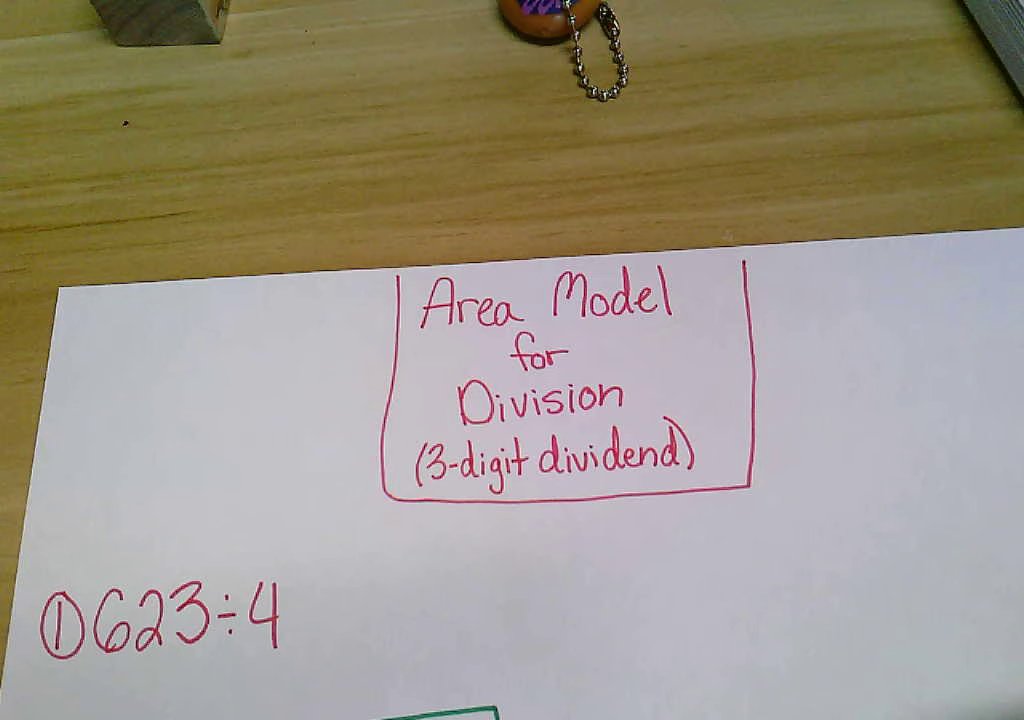 Area Model
for
Division
(3-digit dividend)
① 623÷4